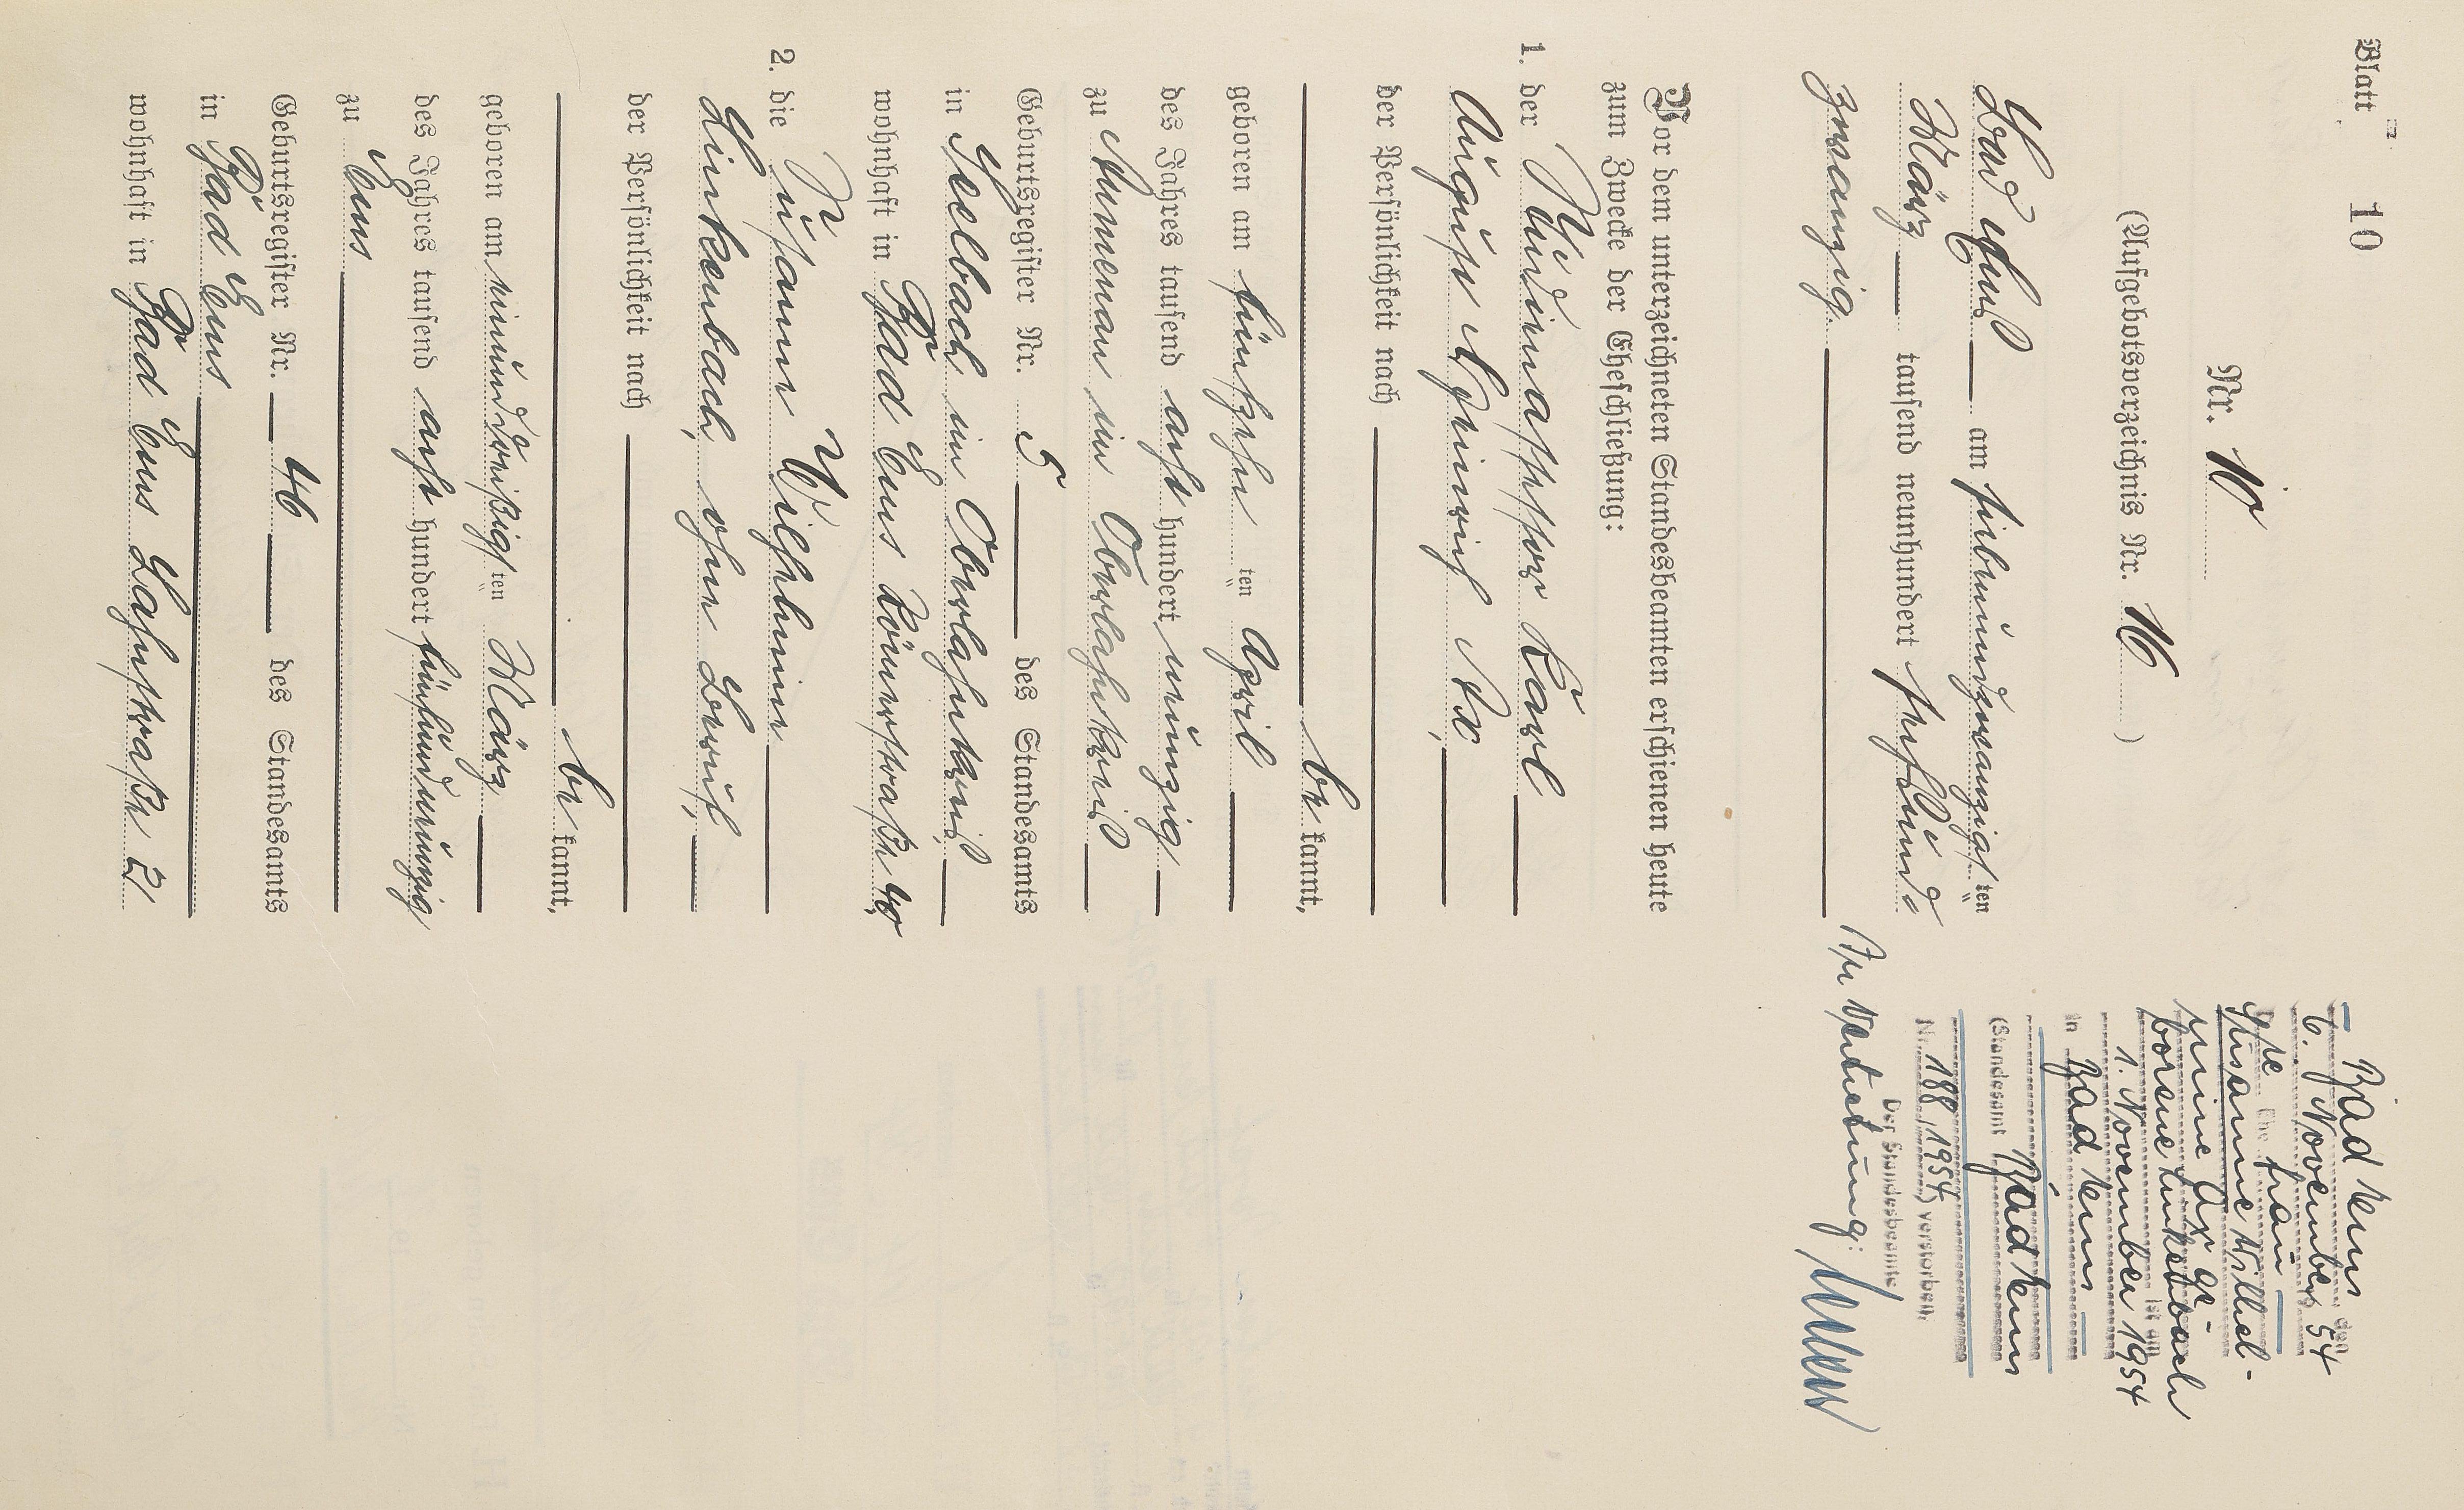 Blatt 10
Nr. 10
(Aufgebotsverzeichnis Nr. 16)
Bad Ems am siebenundzwanzigsten
März tausend neunhundert sechsund-
zwanzig.
Vor dem unterzeichneten Standesbeamten erschienen heute
zum Zwecke der Eheschließung:
1. der Karl
August Heinrich Ax,
der Persönlichkeit nach
be kannt,
geboren am fünfzehnten April
des Jahres tausend acht hundert neunzig
zu Aumenau im Oberlahnkreis
Geburtsregister Nr. 5 des Standesamts
in Seelbach im Oberlahnkreis,
wohnhaft in Bad Ems Römerstraße 40,
2. die Susanne Wilhelmine
Linkenbach, ohne Beruf,
der Persönlichkeit nach
be kannt,
geboren am einunddreißigsten März
des Jahres tausend acht hundert fünfundneunzig
zu Ems
Geburtsregister Nr. 46 des Standesamts
in Bad Ems
wohnhaft in Bad Ems Lahnstraße 2
Bad Ems den
6. November 1954
Die Ehefrau
Susanne Wilhel-
mine Ax ge-
borene Linkenbach
ist am
1. November 1954
in Bad Ems
(Standesamt Bad Ems
Nr. 188/1954) verstorben.
Der Standesbeamte
In Vertretung: